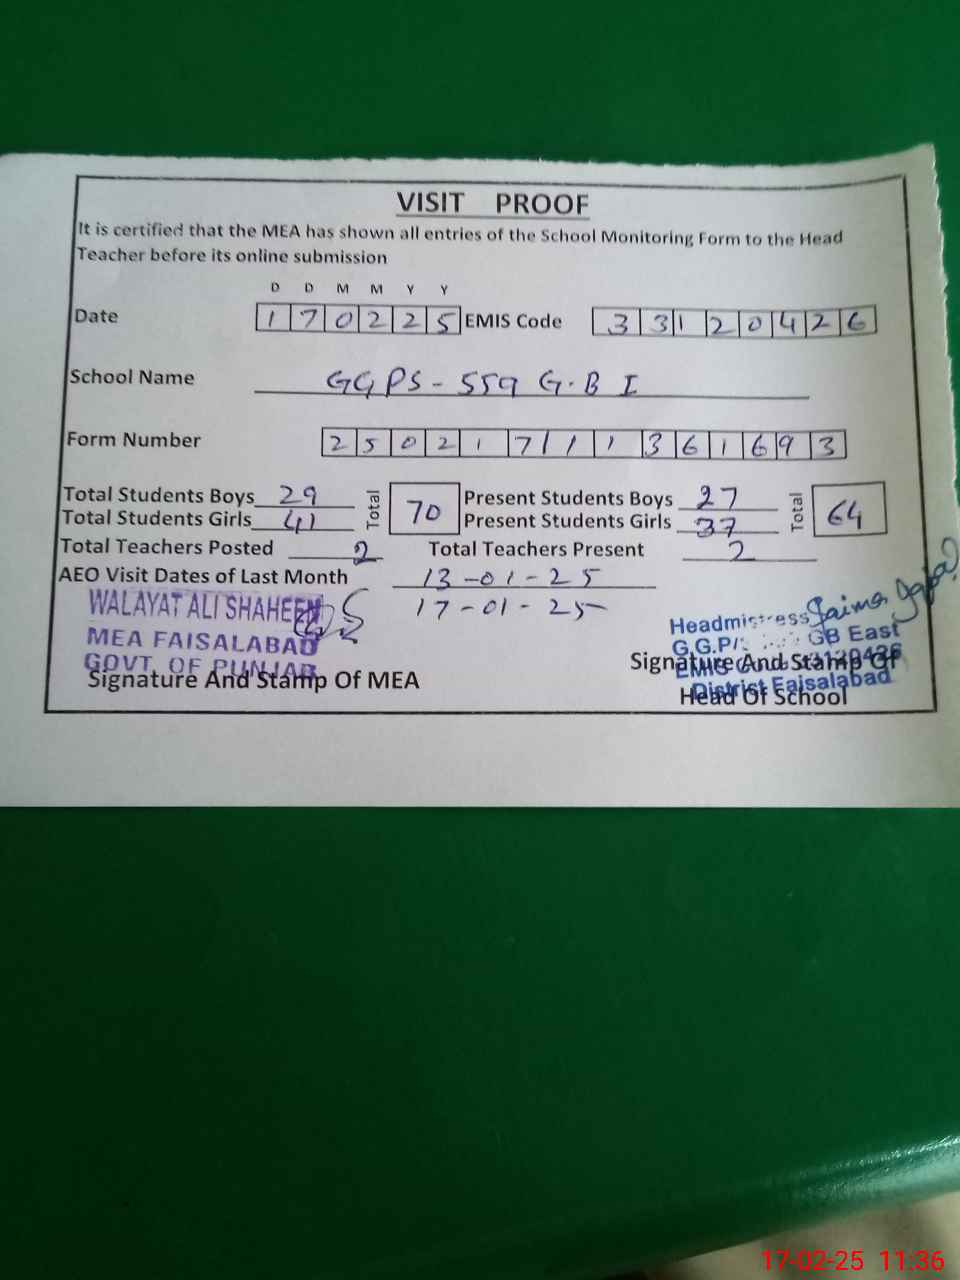 VISIT PROOF
It is certified that the MEA has shown all entries of the School Monitoring Form to the Head
Teacher before its online submission
D D M M Y Y
Date 170225 EMIS Code 33120426
School Name GGPS-559 G.B I
Form Number 2502171 1 361693
Total Students Boys 29 Total 70 Present Students Boys 27 Total 64
Total Students Girls 41 Present Students Girls 37
Total Teachers Posted 2 Total Teachers Present 2
AEO Visit Dates of Last Month 13-01-25
17-01-25
WALAYAT ALI SHAHEEN
MEA FAISALABAD
GOVT. OF PUNJAB
Signature And Stamp Of MEA
Headmistress Saima
G.G.P/ GB East
EMIS
District Faisalabad
Signature And Stamp Of
Head Of School
17-02-25 11:36